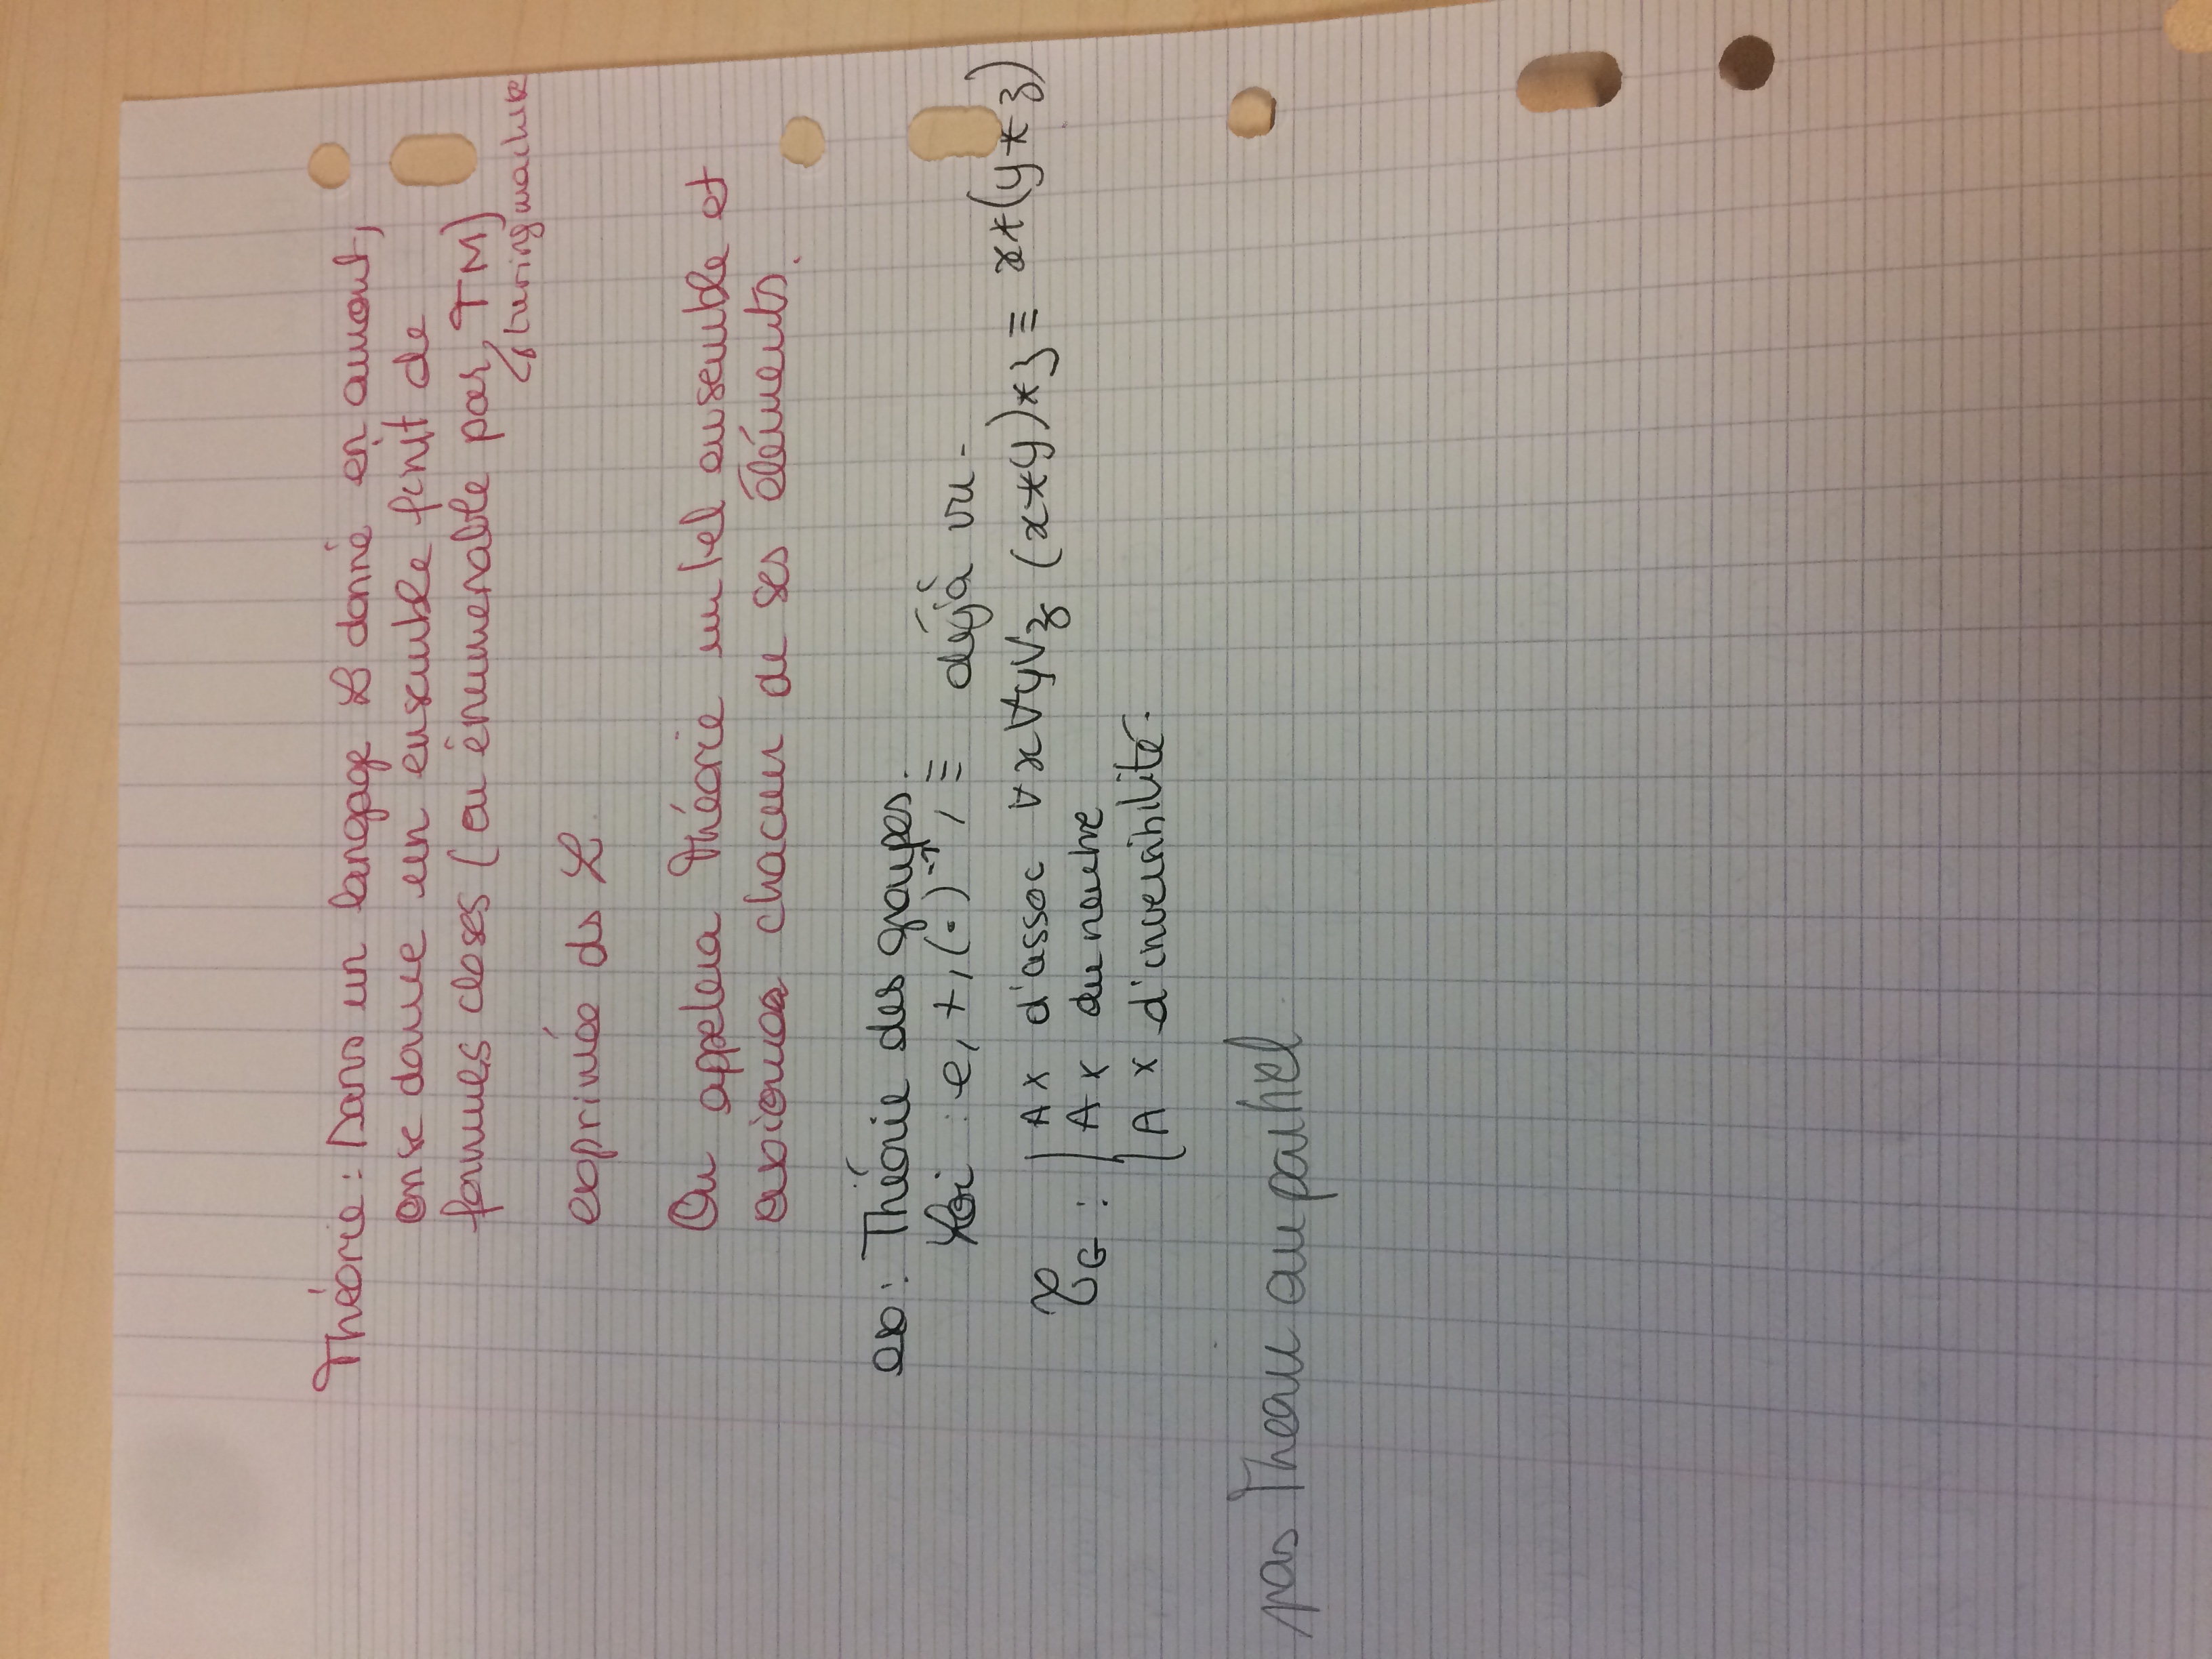 Théorie : Dans un langage ℒ donné en amont,
on se donne un ensemble finit de
formules closes (ou énumerable par TM)
↳ turing machine
exprimée ds ℒ
On appelera théorie un tel ensemble et
axiomes chacun de ses éléments.
ex : Théorie des groupes.
: e, *, (·)⁻¹, ≡ déjà vu.
𝒯G : | Ax d'assoc ∀x∀y∀z (x*y)*z ≡ x*(y*z)
| Ax du neutre
| Ax d'inversibilité.
pas Théorie au partiel